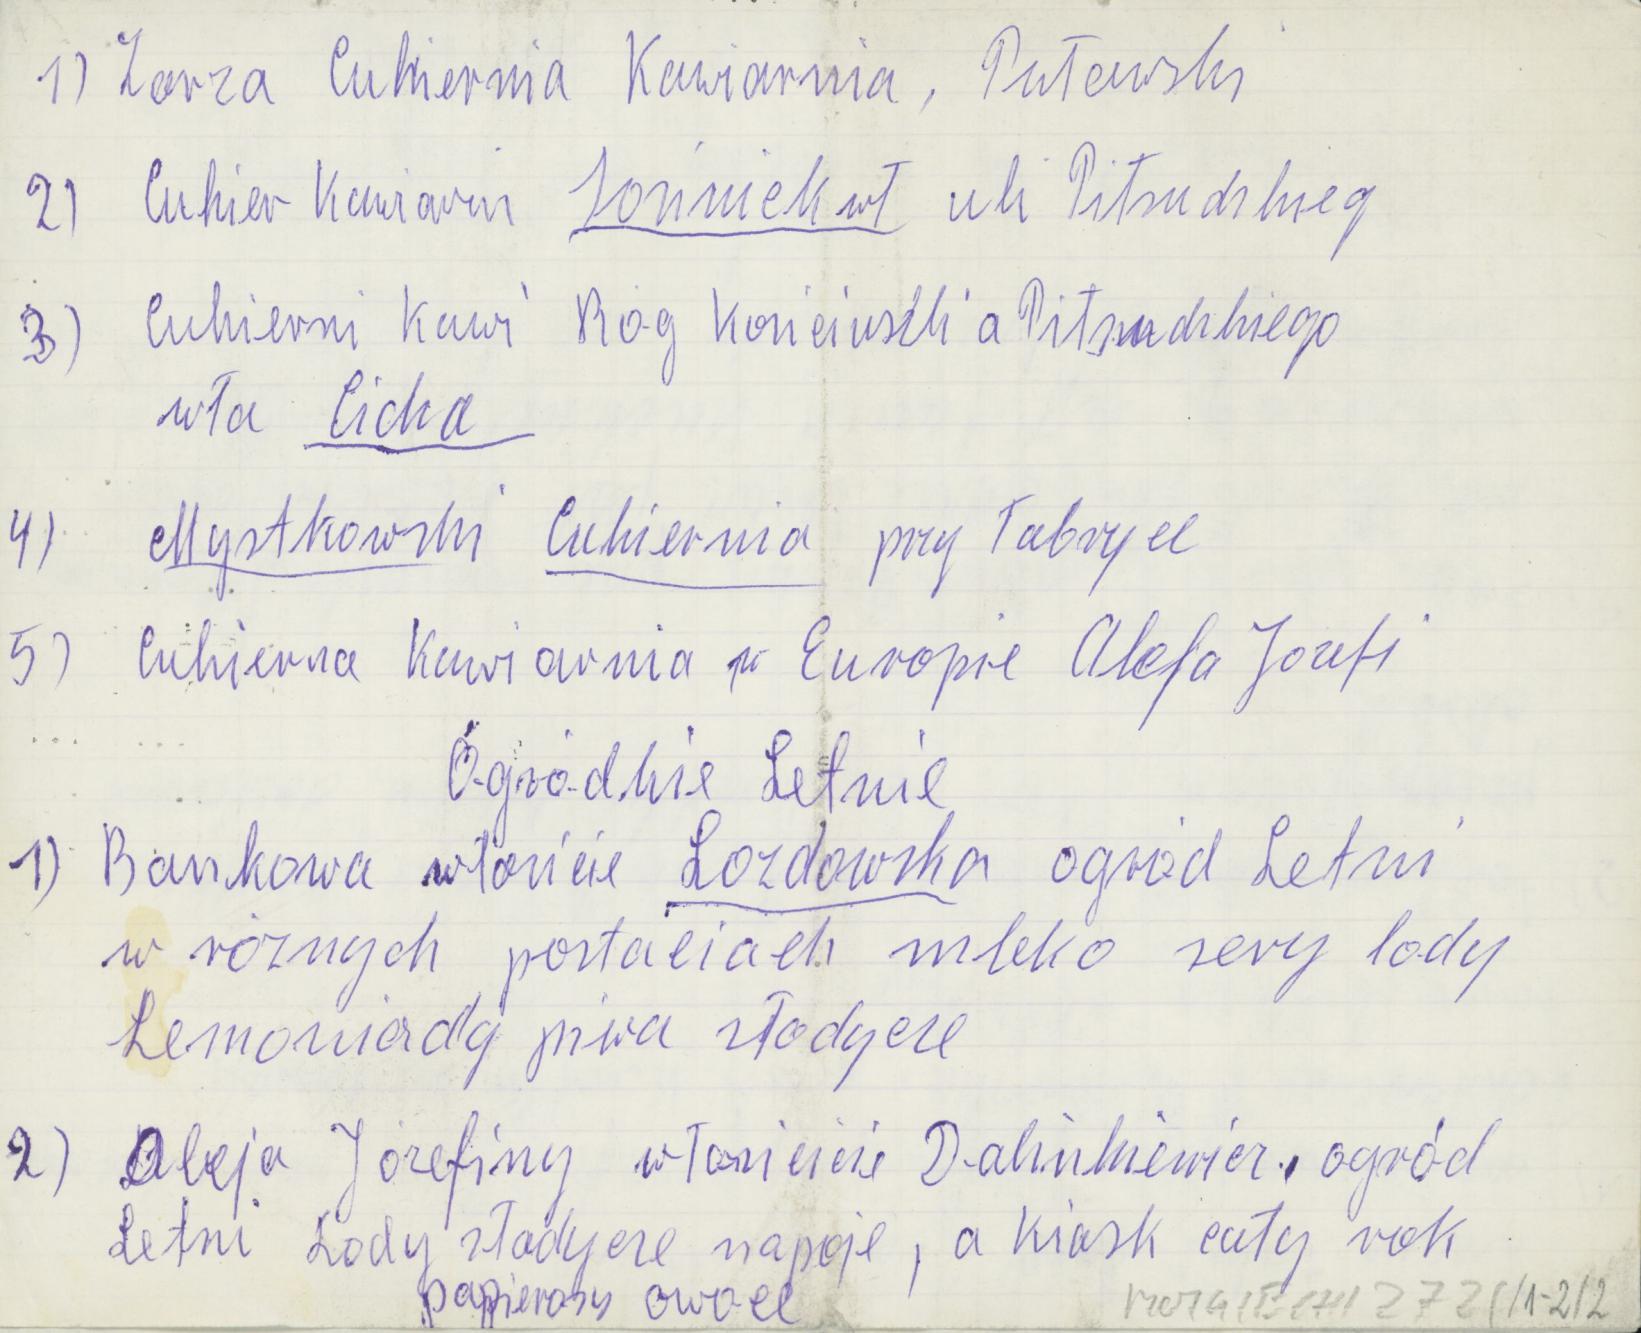 1) Zorza Cukiernia Kawiarnia, Putawski
2) Cukier Kawiarn Łośniek wł uli Piłsudskieg
3) Cukierni Kawi Róg Kościuszki a Piłsudskiego
wła Cicha
4) Mystkowski Cukiernia przy Fabryce
5) Cukierna Kawiarnia w Europie Aleja Józefi
Ogródkie Letnie
1) Bankowa właście Łozdowska ogród Letni
w róznych postaciach mleko sery lody
Lemoniady piwa słodycze
2) Aleja Józefiny właściciie Dalinkiewicz, ogród
Letni Lody słodycze napoje, a kiosk cały rok
papierosy owoce